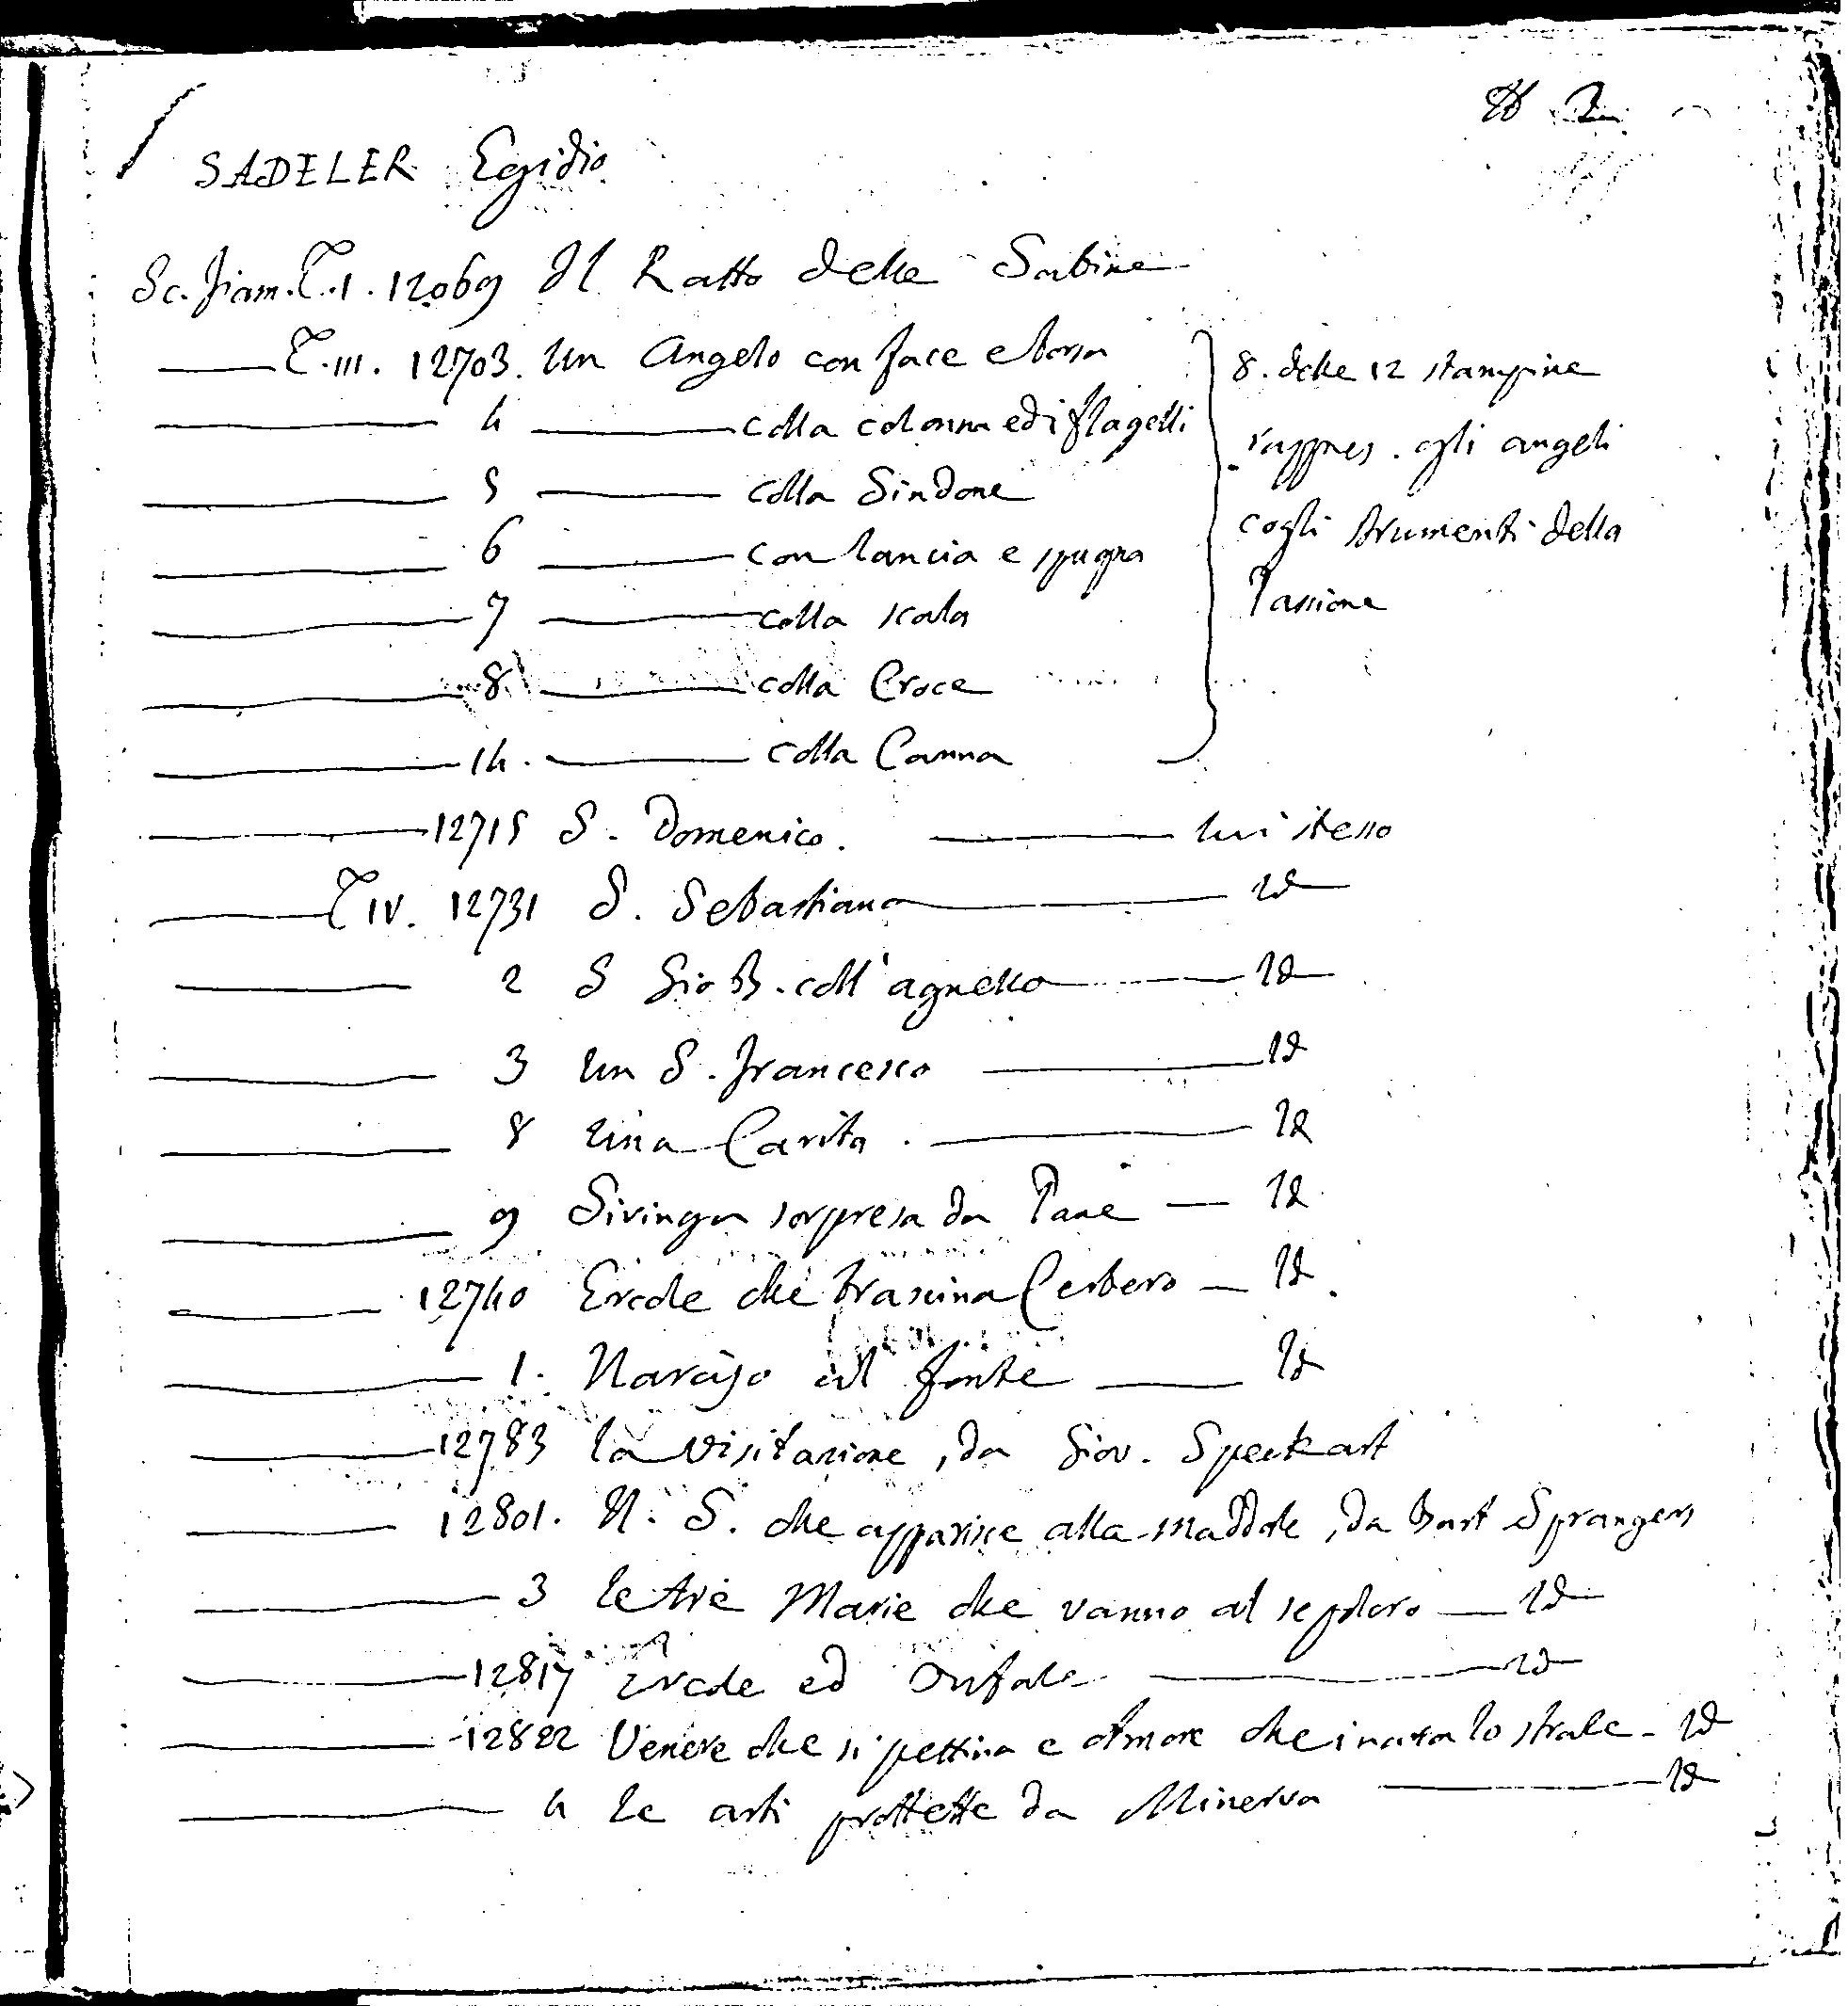 2
SADELER Egidio
Sc. fiam. T. I. 12069 Il Ratto delle Sabine
T. III. 12703. Un Angelo con face e borsa
4 colla colonna ed i flagelli
5 colla Sindone
6 con lancia e spugna
7 colla scala
8. colla Croce
14. colla Canna
8. delle 12 stampine
rappres. gli angeli
cogli strumenti della
Passione
12715 S. Domenico. lui stesso
T IV. 12731 S. Sebastiano Id
2 S Gio B. coll'agnello Id
3 Un S. francesco Id
8 Una Carita. Id
9 Siringa sorpresa da Pane Id
12740 Ercole che trascina Cerbero Id.
1. Narciso al fonte Id
12783 la visitazione, da Giov. Speckart
12801. N. S. che apparisce alla Maddale, da Bart Sprangers
3 le tre Marie che vanno al sepolcro Id
12817 Ercole ed Onfale Id
12822 Venere che si pettina e Amore che inarca lo strale - Id
4 le arti protette da Minerva Id